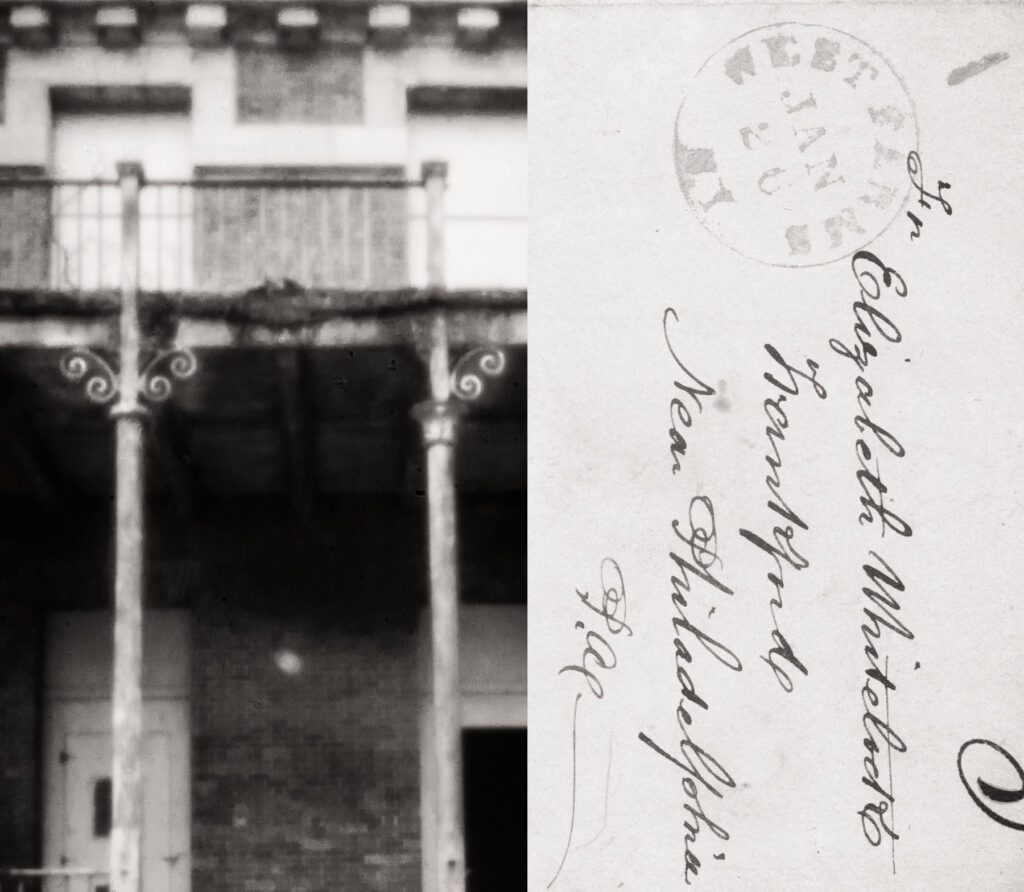 WEST FARMS
JAN
20
NY
Fr Elizabeth Whitelock
Frankford
Near Philadelphia
Pa.